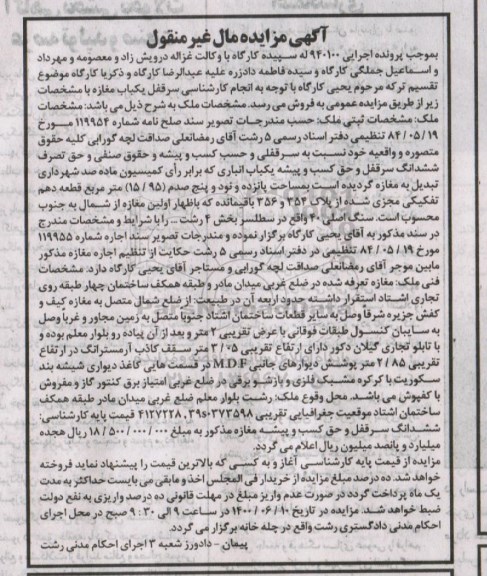 آگهی مزایده مال غیر منقول
بموجب پرونده اجرایی ۹۴۰۱۰۰ له سپیده کارگاه با وکالت غزاله درویش زاد و معصومه و مهرداد
و اسماعیل جملگی کارگاه و سیده فاطمه دادزره علیه عبدالرضا کارگاه و ذکریا کارگاه موضوع
تقسیم ترکه مرحوم یحیی کارگاه با توجه به انجام کارشناسی سرقفل یکباب مغازه با مشخصات
زیر از طریق مزایده عمومی به فروش می رسد. مشخصات ملک به شرح ذیل می باشد: مشخصات
ملک: مشخصات ثبتی ملک: حسب مندرجات تصویر سند صلح نامه شماره ۱۱۹۹۵۴ مورخ
۸۴/۰۵/۱۹ تنظیمی دفتر اسناد رسمی ۵ رشت آقای رمضانعلی صداقت لچه گورابی کلیه حقوق
متصوره و واقعیه خود نسبت به سرقفلی و حسب کسب و پیشه و حقوق صنفی و حق تصرف
ششدانگ سرقفل و حق کسب و پیشه یکباب انباری که برابر رأی کمیسیون ماده صد شهرداری
تبدیل به مغازه گردیده است بمساحت پانزده و نود و پنج صدم (۱۵/۹۵) متر مربع قطعه دهم
تفکیکی مجزی شده از پلاک ۳۵۴ و ۳۵۶ باقیمانده که باظهار اولین مغازه از شمال به جنوب
محسوب است. سنگ اصلی ۴۰ واقع در سطلسر بخش ۴ رشت ... را با شرایط و مشخصات مندرج
در سند مذکور به آقای یحیی کارگاه برگزار نموده و مندرجات تصویر سند اجاره شماره ۱۱۹۹۵۵
مورخ ۸۴/۰۵/۱۹ تنظیمی در دفتر اسناد رسمی ۵ رشت حکایت از تنظیم اجاره مغازه مذکور
مابین موجر آقای رمضانعلی صداقت لچه گورابی و مستاجر آقای یحیی کارگاه دارد. مشخصات
فنی ملک: مغازه تعرفه شده در ضلع غربی میدان مادر و طبقه همکف ساختمان چهار طبقه روی
تجاری استاد استقرار داشته حدود اربعه آن در طبیعت: از ضلع شمال متصل به مغازه کیف و
کفش جزیره شرقاً وصل به سایر قطعات ساختمان اشتاد جنوبا متصل به زمین مجاور و غرباً وصل
به سایبان کنسول طبقات فوقانی با عرض تقریبی ۲ متر و بعد از آن پیاده رو بلوار معلم بوده و
با تابلو تجاری گیلان دکور دارای ارتفاع تقریبی ۳/۰۵ متر سقف کاذب آرمسترانگ در ارتفاع
تقریبی ۲/۸۵ متر پوشش دیوارهای جانبی MDF در قسمت هایی کاغذ دیواری شیشه بند
سکوریت با کرکره مشبک فلزی و بازشو برقی در ضلع غربی امتیاز برق کنتور گاز و مفروش
با کفپوش می باشد. محل وقوع ملک: رشت بلوار معلم ضلع غربی میدان مادر طبقه همکف
ساختمان اشتاد موقعیت جغرافیایی تقریبی ۴۱۲۷۲۲۸ ,39s۰۳۷۳۵۹۸ قیمت پایه کارشناسی:
ششدانگ سرقفل و حق کسب و پیشه مغازه مذکور به مبلغ ۱۸/۵۰۰/۰۰۰/۰۰۰ ریال هجده
میلیارد و پانصد میلیون ریال اعلام می گردد.
مزایده از قیمت پایه کارشناسی آغاز و به کسی که بالاترین قیمت را پیشنهاد نماید فروخته
خواهد شد. ده درصد مبلغ مزایده از خریدار فی المجلس اخذ و مابقی می بایست حداکثر به مدت
یک ماه پرداخت گردد در صورت عدم واریز مبلغ در مهلت قانونی ده درصد واریزی به نفع دولت
ضبط خواهد شد. مزایده در تاریخ ۱۴۰۰/۰۶/۱۰ در ساعت ۹ الی ۹:۳۰ صبح در محل اجرای
احکام مدنی دادگستری رشت واقع در چله خانه برگزار می گردد.
پیمان - دادورز شعبه ۳ اجرای احکام مدنی رشت